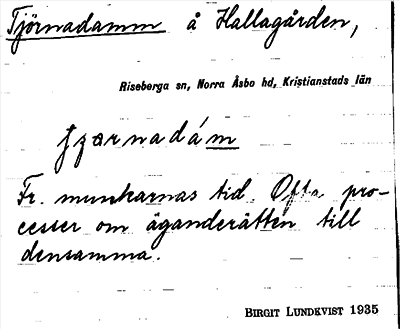 Tjörnadamm å Hallagården,
Riseberga sn, Norra Åsbo hd, Kristianstads län
Fr. munkarnas tid. Ofta pro-
cesser om äganderätten till
densamma.
BIRGIT LUNDKVIST 1935